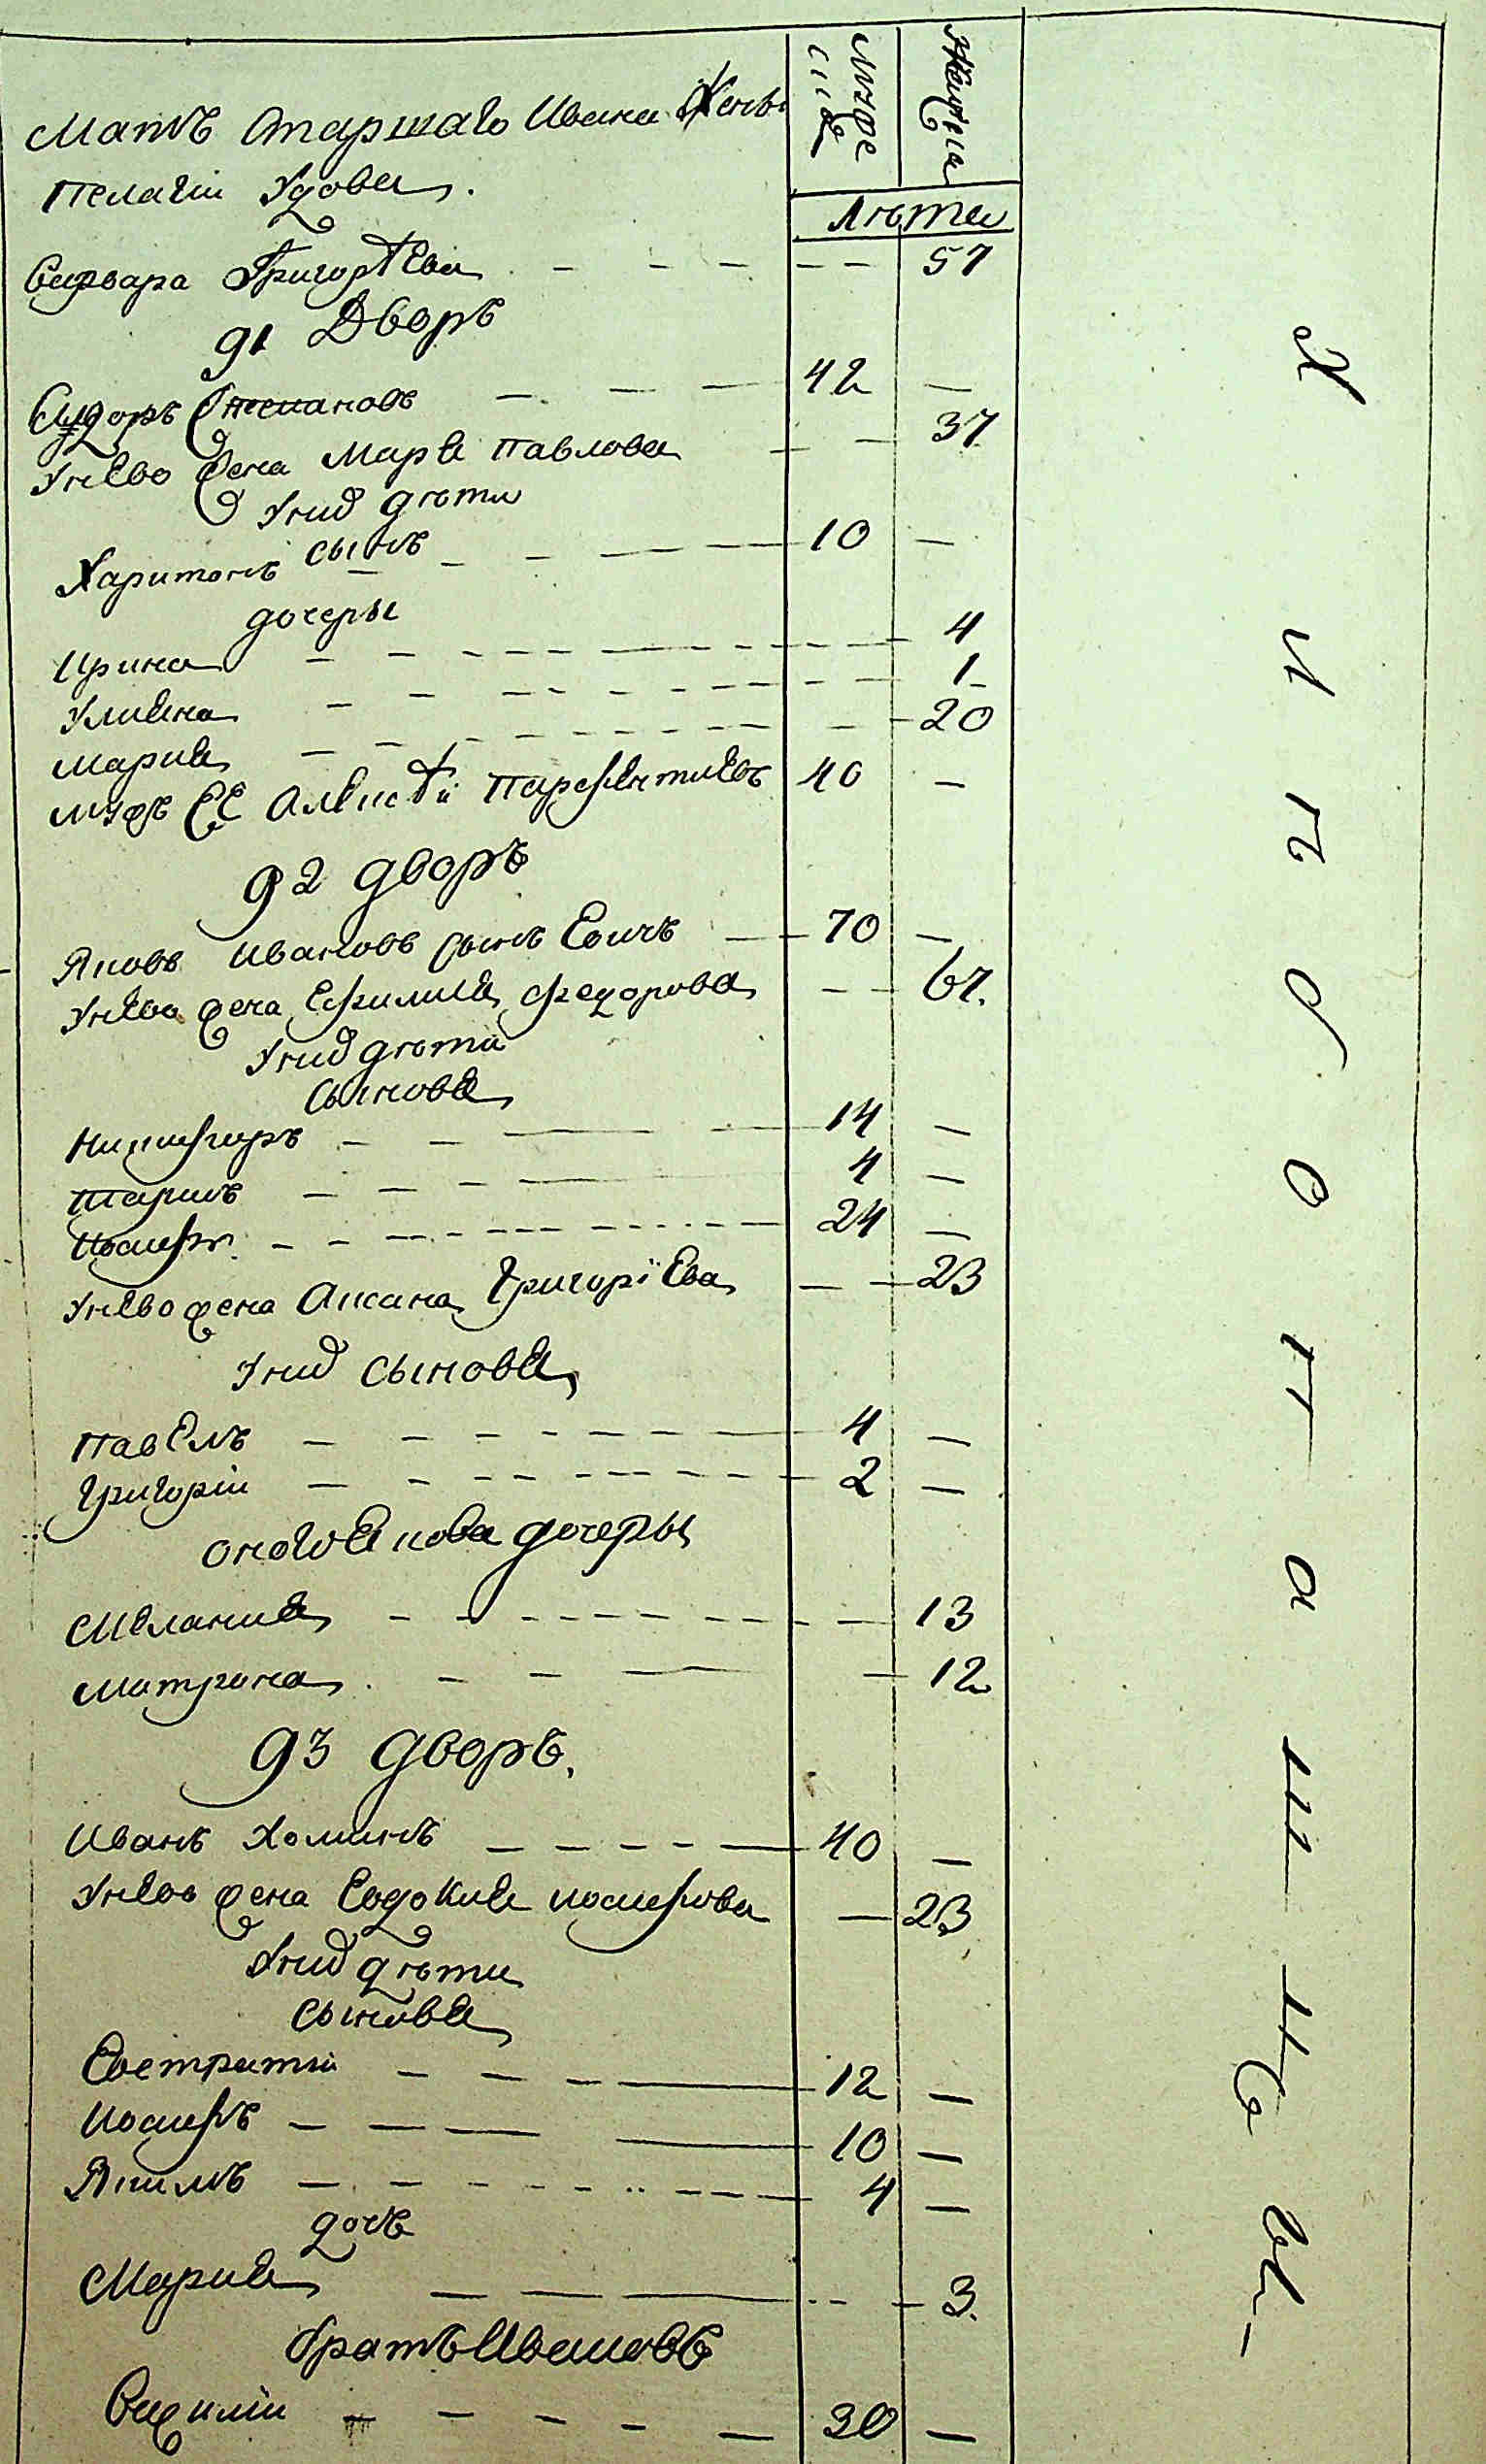 мужеск
Женска
Мать старшаго Ивана Жены
Пелагіи Удова.
лѣта
Варвара Григорьева 57
91 Дворъ
Сидоръ Степановъ 42 —
Унево жена Маря Павлова 37
Унид дѣти
Харитонъ сынъ 10 —
дочеры
Ирина 4
Улияна 1
Мария 20
мужъ Ее Алексѣй Парфентиевъ 40 —
92 дворъ
Яковъ Ивановъ сынъ 70 —
Унево жена Ефимия Федорова 67.
Унид дѣти
Сыновя
Никифоръ 14 —
4 —
Иосифъ 24 —
Унево жена Аксана Григоріева 23
Унид сыновя
Павелъ 4 —
Григоріи 2 —
оного Якова дочеры
Мелания 13
Матрона 12
93 дворъ.
Иванъ Хоминъ 40 —
Унево жена Евдокия Иосифова 23
Унид дѣти
сыновя
Евстратіи 12 —
Иосифъ 10 —
Якимъ 4 —
дочь
Мария 3.
братъ Ивановъ
Василіи 30 —